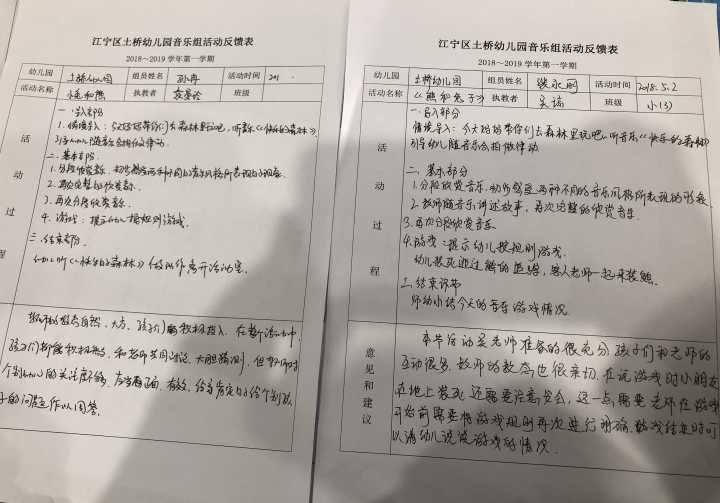 江宁区土桥幼儿园音乐组活动反馈表
2018~2019学年第一学期
幼儿园 土桥幼儿园 组员姓名 孙冉 活动时间 201
活动名称 执教者 班级
活动过程
一、导入部分
1. 情境导入：今天妈妈带你们去森林里玩吧，听音乐《快乐的森林》
引导幼儿随音乐合拍做律动.
二、基本部分
1. 分段欣赏音乐，初步感受两种不同的音乐风格所表现的形象.
2. 再次完整的欣赏音乐.
3. 再次分段欣赏音乐.
4. 游戏：提示幼儿按规则游戏.
三、结束部分.
幼儿听《快乐的森林》做动作离开活动室.
教师的教态自然、大方、孩子们的积极投入. 在整个活动中,
孩子们都能积极 和老师共同讨论、大胆猜测, 但教师对
个别幼儿的关注 不够,
江宁区土桥幼儿园音乐组活动反馈表
2018~2019学年第一学期
幼儿园 土桥幼儿园 组员姓名 活动时间 2018.5.2
活动名称 《熊和兔子》 执教者 班级 小(3)
活动过程
一、导入部分
情境导入：今天妈妈带你们去森林里玩吧.听音乐《快乐的森林》
引导幼儿随音乐合拍做律动
二、基本部分
1. 分段欣赏音乐.初步感受两种不同的音乐风格所表现的形象.
2. 教师随音乐讲述故事，再次完整的欣赏音乐.
3. 再次分段欣赏音乐
4. 游戏：提示幼儿按规则游戏.
幼儿装死逃过熊的追捕，客人老师一起来装熊.
三、结束部分
师幼小结今天的音乐游戏情况.
意见和建议
本节活动吴老师准备的很充分,孩子们和老师的
互动很多.教师的教态也很亲切.在玩游戏时小朋友
在地上装死还需要注意安全,这一点需要老师在游戏
开始前需要将游戏规则再次进行明确.游戏结束时可
以请幼儿说说游戏的情况.